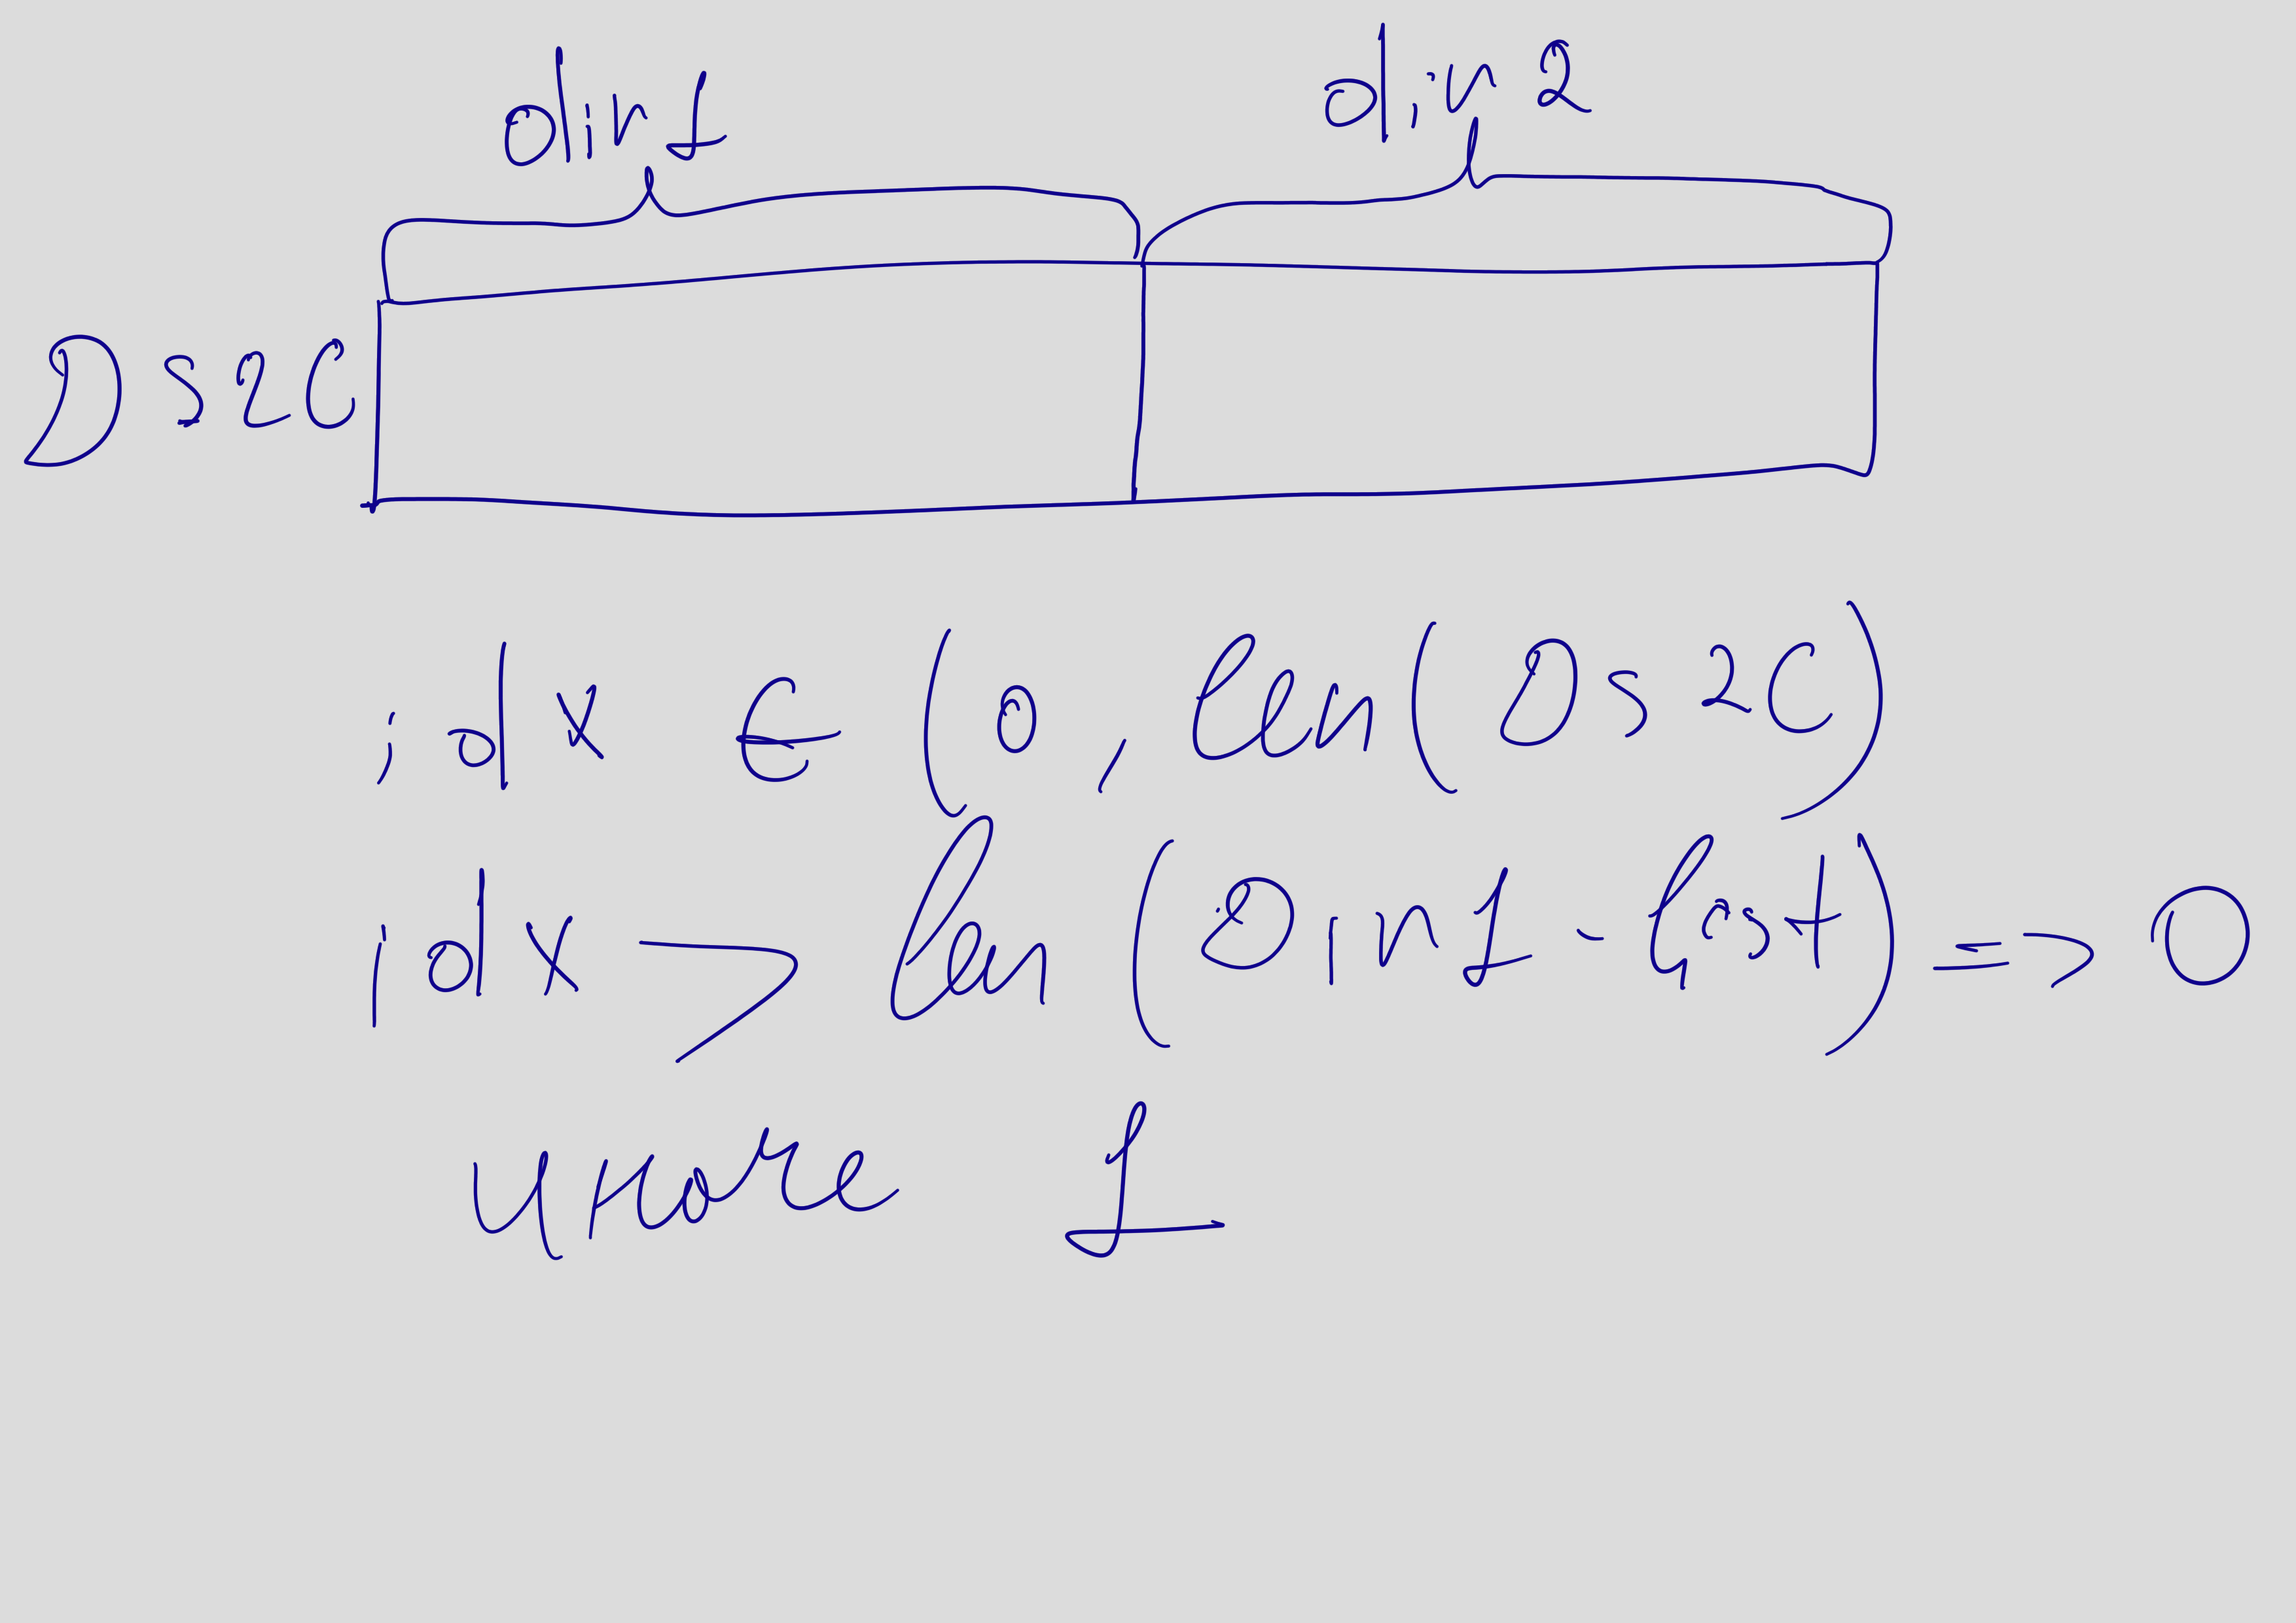 dir1 dir2
Ds2C
idx ∈ (0, len(Ds2C)
idx > len(Dir1-list) => 0
иначе 1